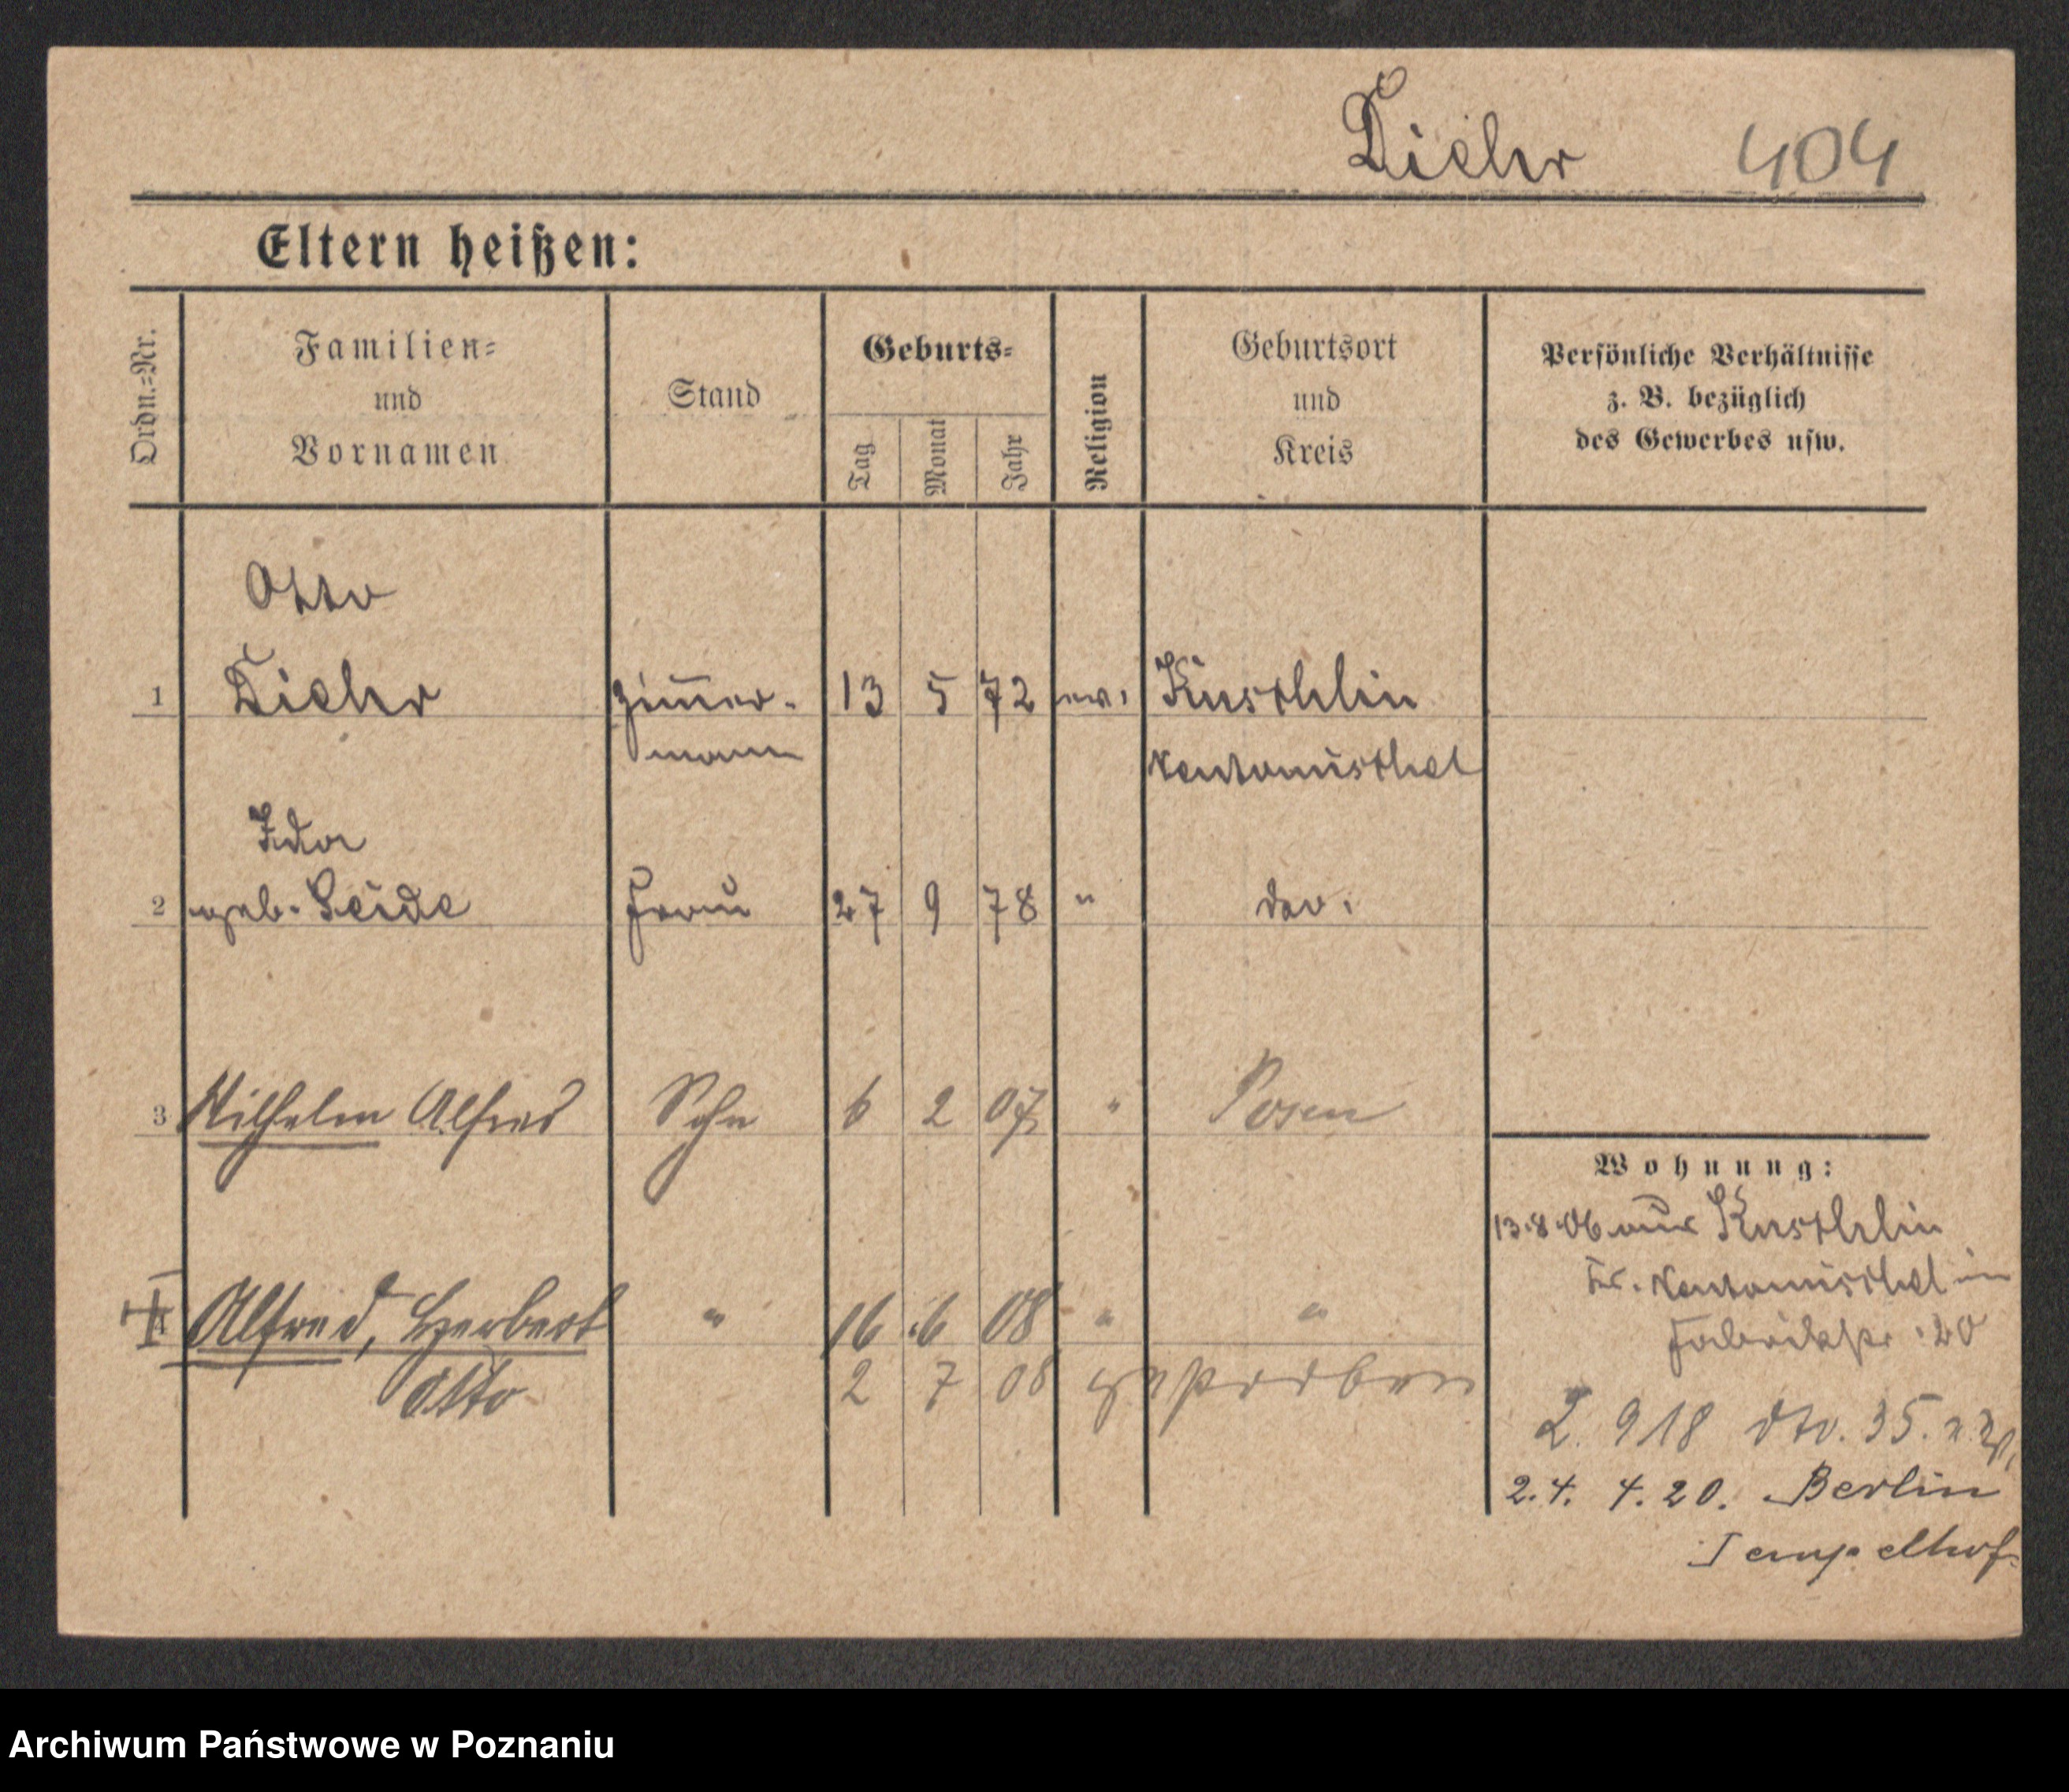 Diehr 404
Eltern heißen:
Ordn.=Nr.
Familien=
und
Vornamen
Stand
Geburts=
Tag
Monat
Jahr
Religion
Geburtsort
und
Kreis
Persönliche Verhältnisse
z. B. bezüglich
des Gewerbes usw.
Otto
1 Diehr Zimmer- 13 5 72 ev. Kuschlin
mann
Ida
2 geb. Seide Frau 27 9 78 " do.
3 Wilhelm Alfred Sohn 6 2 07 " Posen
Wohnung:
13.8.06 aus Kuschlin
in
Alfred, Herbert " 16 6 08 " "
Fabrikstr. 20
Otto 2 7 08 gestorben
2. 9 18 dto. 35.
2.4. 4.20. Berlin
Tempelhof
Archiwum Państwowe w Poznaniu